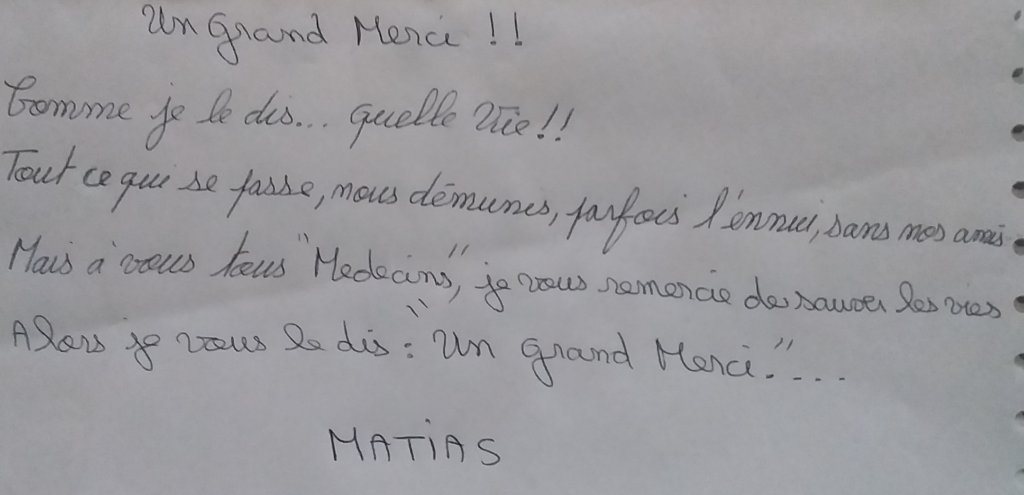 Un Grand Merci !!
Comme je le dis... quelle vie!!
Tout ce qui se passe, nous démunes, parfois l'ennui, sans nos amis
Mais à vous tous "Medecins", je vous remercie de sauver les vies
Alors je vous le dis : "Un grand Merci."....
MATiAS